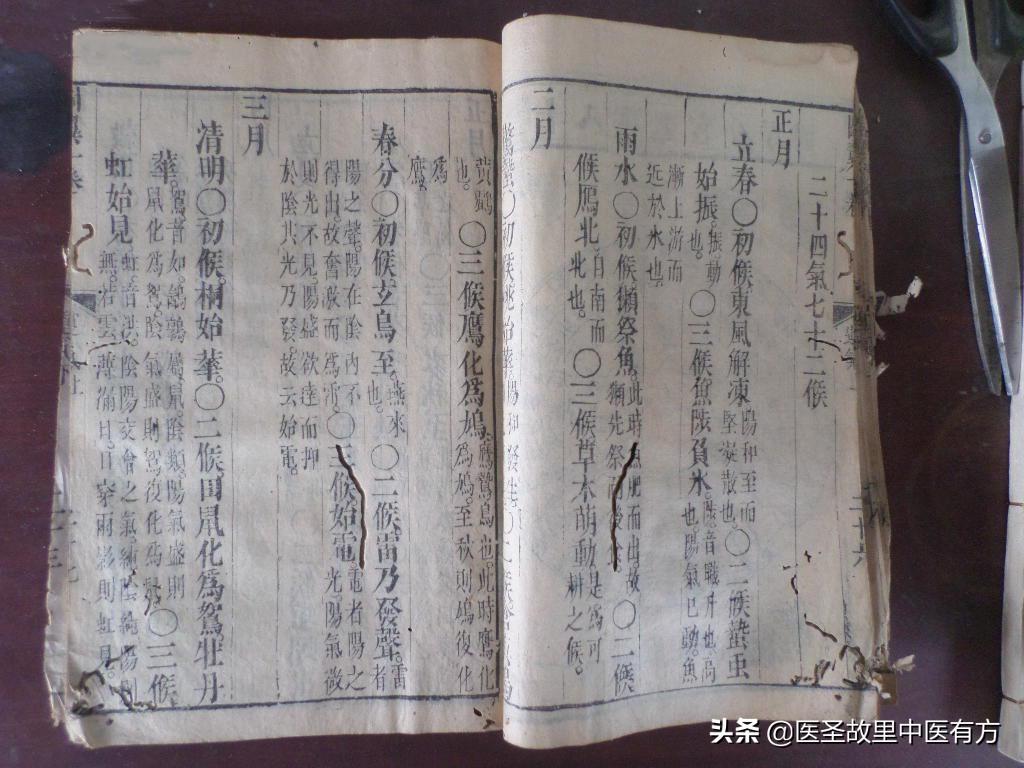 二十四氣七十二候
正月
立春〇初候東風解凍陽和至而堅凝散也。〇二候蟄虫
始振。振動也。〇三候魚陟負氷。陟音職升也高也陽氣已動。魚
漸上游而近於氷也
雨水〇初候獺祭魚。此時魚肥而出故獺先祭而後〇二候
候鴈北。自南而北也。〇三候草木萌動是為可耕之候。
二月
驚蟄〇初候桃始華陽和發生〇二候
黃鸝也。〇三候鷹化為鳩。鷹鷙鳥也。此時鷹化為鳩。至秋則鳩復化
為鷹。
春分〇初候玄鳥至。燕來也。〇二候雷乃發聲。雷者
陽之聲。陽在陰内不得出。故奮激而為雷。〇三候始電。電者陽之光陽氣微
則光不見。陽盛欲達而抑於陰其光乃發故云始電。
三月
清明〇初候桐始華。〇二候田鼠化為鴽牡丹
華。鴽音如。鵪鶉屬鼠陰類。陽氣盛則鼠化為鴽。陰氣盛則鴽復化為鼠〇三候
虹始見。虹音洪。陰陽交會之氣純陰純陽則無。若雲薄漏日日穿雨影則虹見。
头条 @医圣故里中医有方